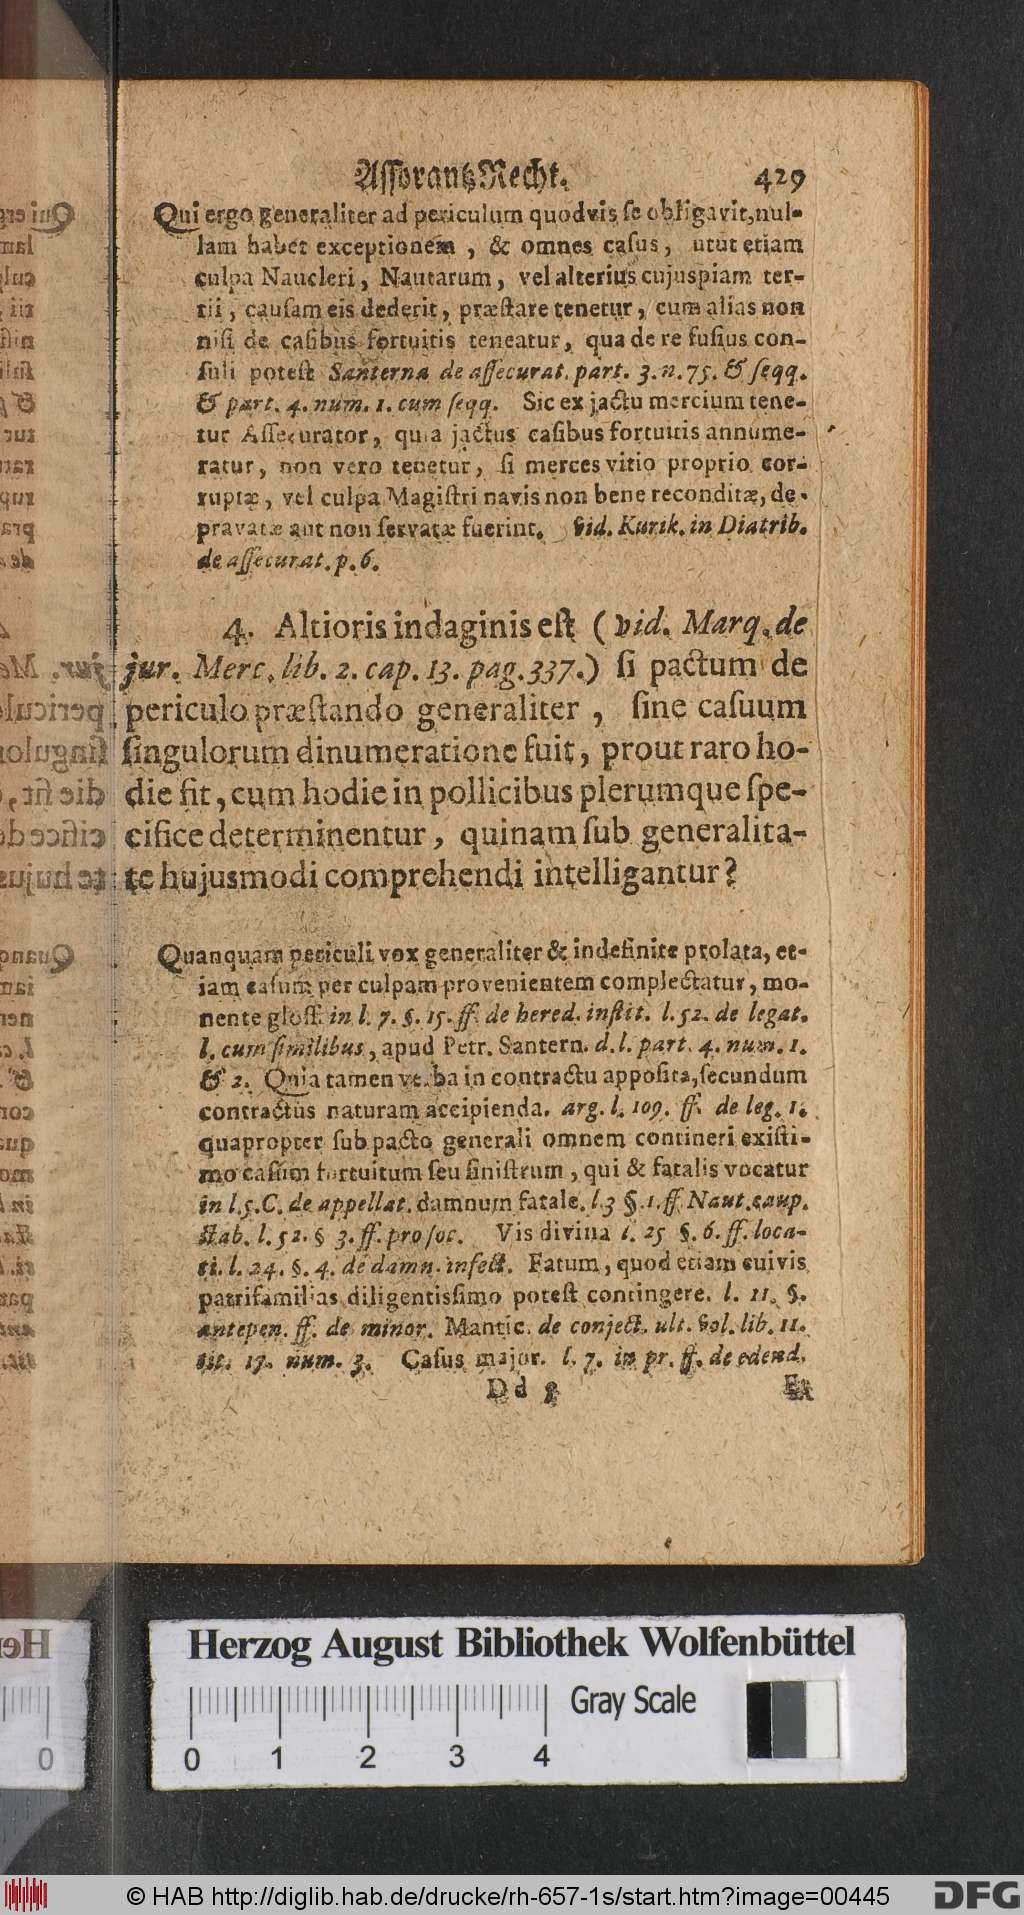 Assorantz Recht. 429
Qui ergo generaliter ad periculum quodvis se obligavit, nul-
lam habet exceptionem, & omnes casus, utut etiam
culpa Naucleri, Nautarum, vel alterius cujuspiam ter-
tii, causam eis dederit, præstare tenetur, cum alias non
nisi de casibus fortuitis teneatur, qua de re fusius con-
suli potest Santerna de assecurat. part. 3. n. 75. & seqq.
& part. 4. num. 1. cum seqq. Sic ex jactu mercium tene-
tur Assecurator, quia jactus casibus fortuitis annume-
ratur, non vero tenetur, si merces vitio proprio cor-
ruptæ, vel culpa Magistri navis non bene reconditæ, de-
pravatæ aut non servatæ fuerint. vid. Kurik. in Diatrib.
de assecurat. p. 6.
4. Altioris indaginis est (vid. Marq. de
jur. Merc. lib. 2. cap. 13. pag. 337.) si pactum de
periculo præstando generaliter, sine casuum
singulorum dinumeratione fuit, prout raro ho-
die fit, cum hodie in pollicibus plerumque spe-
cifice determinentur, quinam sub generalita-
te hujusmodi comprehendi intelligantur?
Quanquam periculi vox generaliter & indefinite prolata, et-
iam casum per culpam provenientem complectatur, mo-
nente gloss. in l. 7. §. 15. ff. de hered. instit. l. 52. de legat.
l. cum similibus, apud Petr. Santern. d. l. part. 4. num. 1.
& 2. Quia tamen verba in contractu apposita, secundum
contractus naturam accipienda. arg. l. 109. ff. de leg. 1.
quapropter sub pacto generali omnem contineri existi-
mo casum fortuitum seu sinistrum, qui & fatalis vocatur
in l. 5. C. de appellat. damnum fatale. l. 3 §. 1. ff. Naut. caup.
stab. l. 52. § 3. ff. pro soc. Vis divina l. 25 §. 6. ff. loca-
ti. l. 24. §. 4. de damn. infect. Fatum, quod etiam cuivis
patrifamilias diligentissimo potest contingere. l. 11. §.
antepen. ff. de minor. Mantic. de conject. ult. vol. lib. 11.
tit. 17. num. 3. Casus major. l. 7. in pr. ff. de edend.
Dd Et
Herzog August Bibliothek Wolfenbüttel
0 1 2 3 4 Gray Scale
© HAB http://diglib.hab.de/drucke/rh-657-1s/start.htm?image=00445
DFG